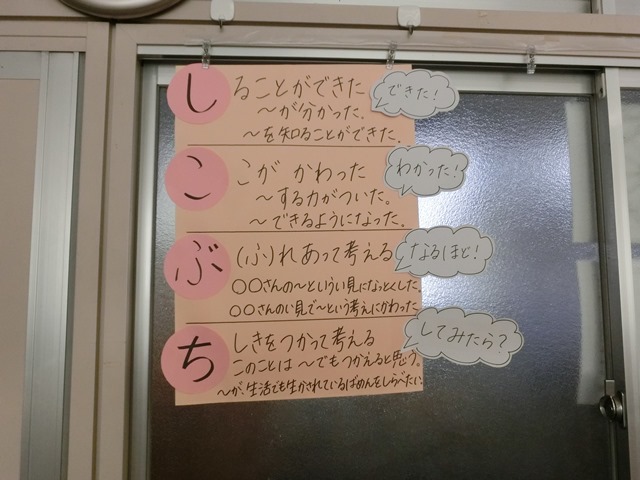 しることができた
できた!
～が分かった.
～を知ることができた.
ここが かわった
わかった!
～する力がついた。
～できるようになった.
ぶ(ふ)れあって考える
なるほど!
○○さんの～といういい見になっとくした.
○○さんのい見で～という考えにかわった
ちしきをつかって考える
してみたら?
このことは～でもつかえると思う。
～が、生活でも生かされているばめんをしらべたい.